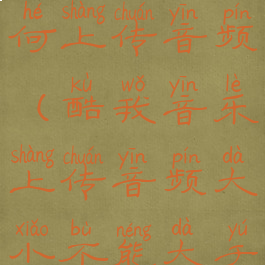 hé shàng chuán yīn pín
何上传音频
kù wǒ yīn lè
（酷我音乐
shàng chuán yīn pín dà
上传音频大
xiǎo bù néng dà yú
小不能大于